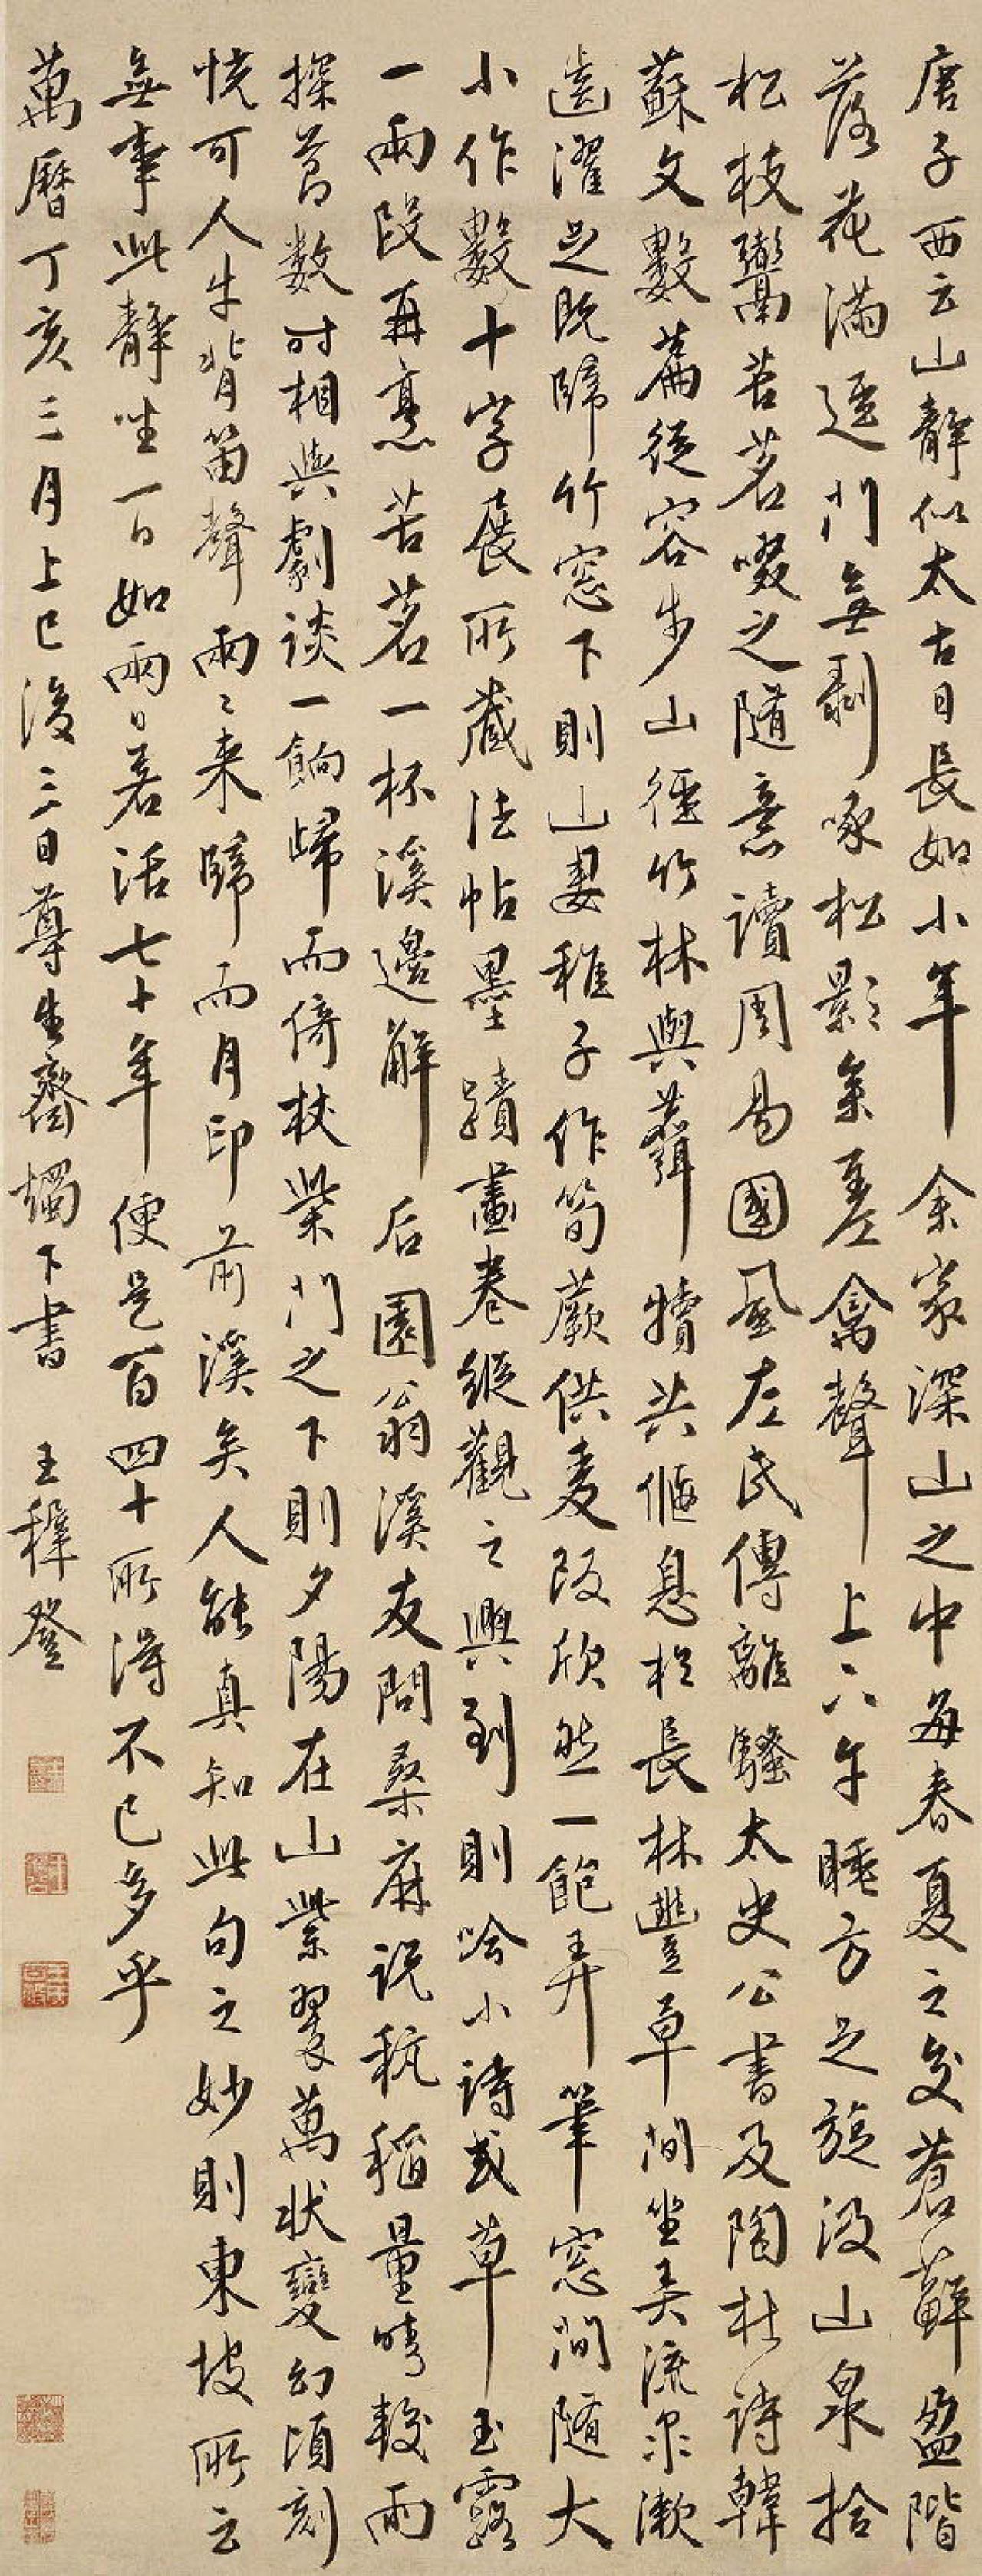 唐子西云山靜似太古日長如小年余家深山之中每春夏之交蒼蘚盈階
落花滿逕門無剝啄松影參差禽聲上下午睡方足旋汲山泉拾
松枝鬻苦茗啜之隨意讀周易國風左氏傳離騷太史公書及陶杜詩韓
蘇文數篇從容步山徑竹林與麛犢共偃息於長林豐草間坐弄流泉漱
齒濯足既歸竹窓下則山妻稚子作筍蕨供麦飯欣然一飽弄筆窓間随大
小作數十字展所藏法帖墨蹟畫卷縱觀之興到則吟小詩或草玉露
一兩段再烹苦茗一杯溪邊解后園翁溪友問桑麻說秔稻量晴較雨
探節数时相與劇談一餉歸而倚杖柴門之下則夕陽在山紫翠萬状變幻頃刻
恍可人牛背笛聲兩〻来歸而月印前溪矣人能真知此句之妙則東坡所云
無事此靜坐一日如兩日若活七十年便是百四十所得不已多乎
萬曆丁亥三月上巳後三日尊生齋燭下書 王穉登